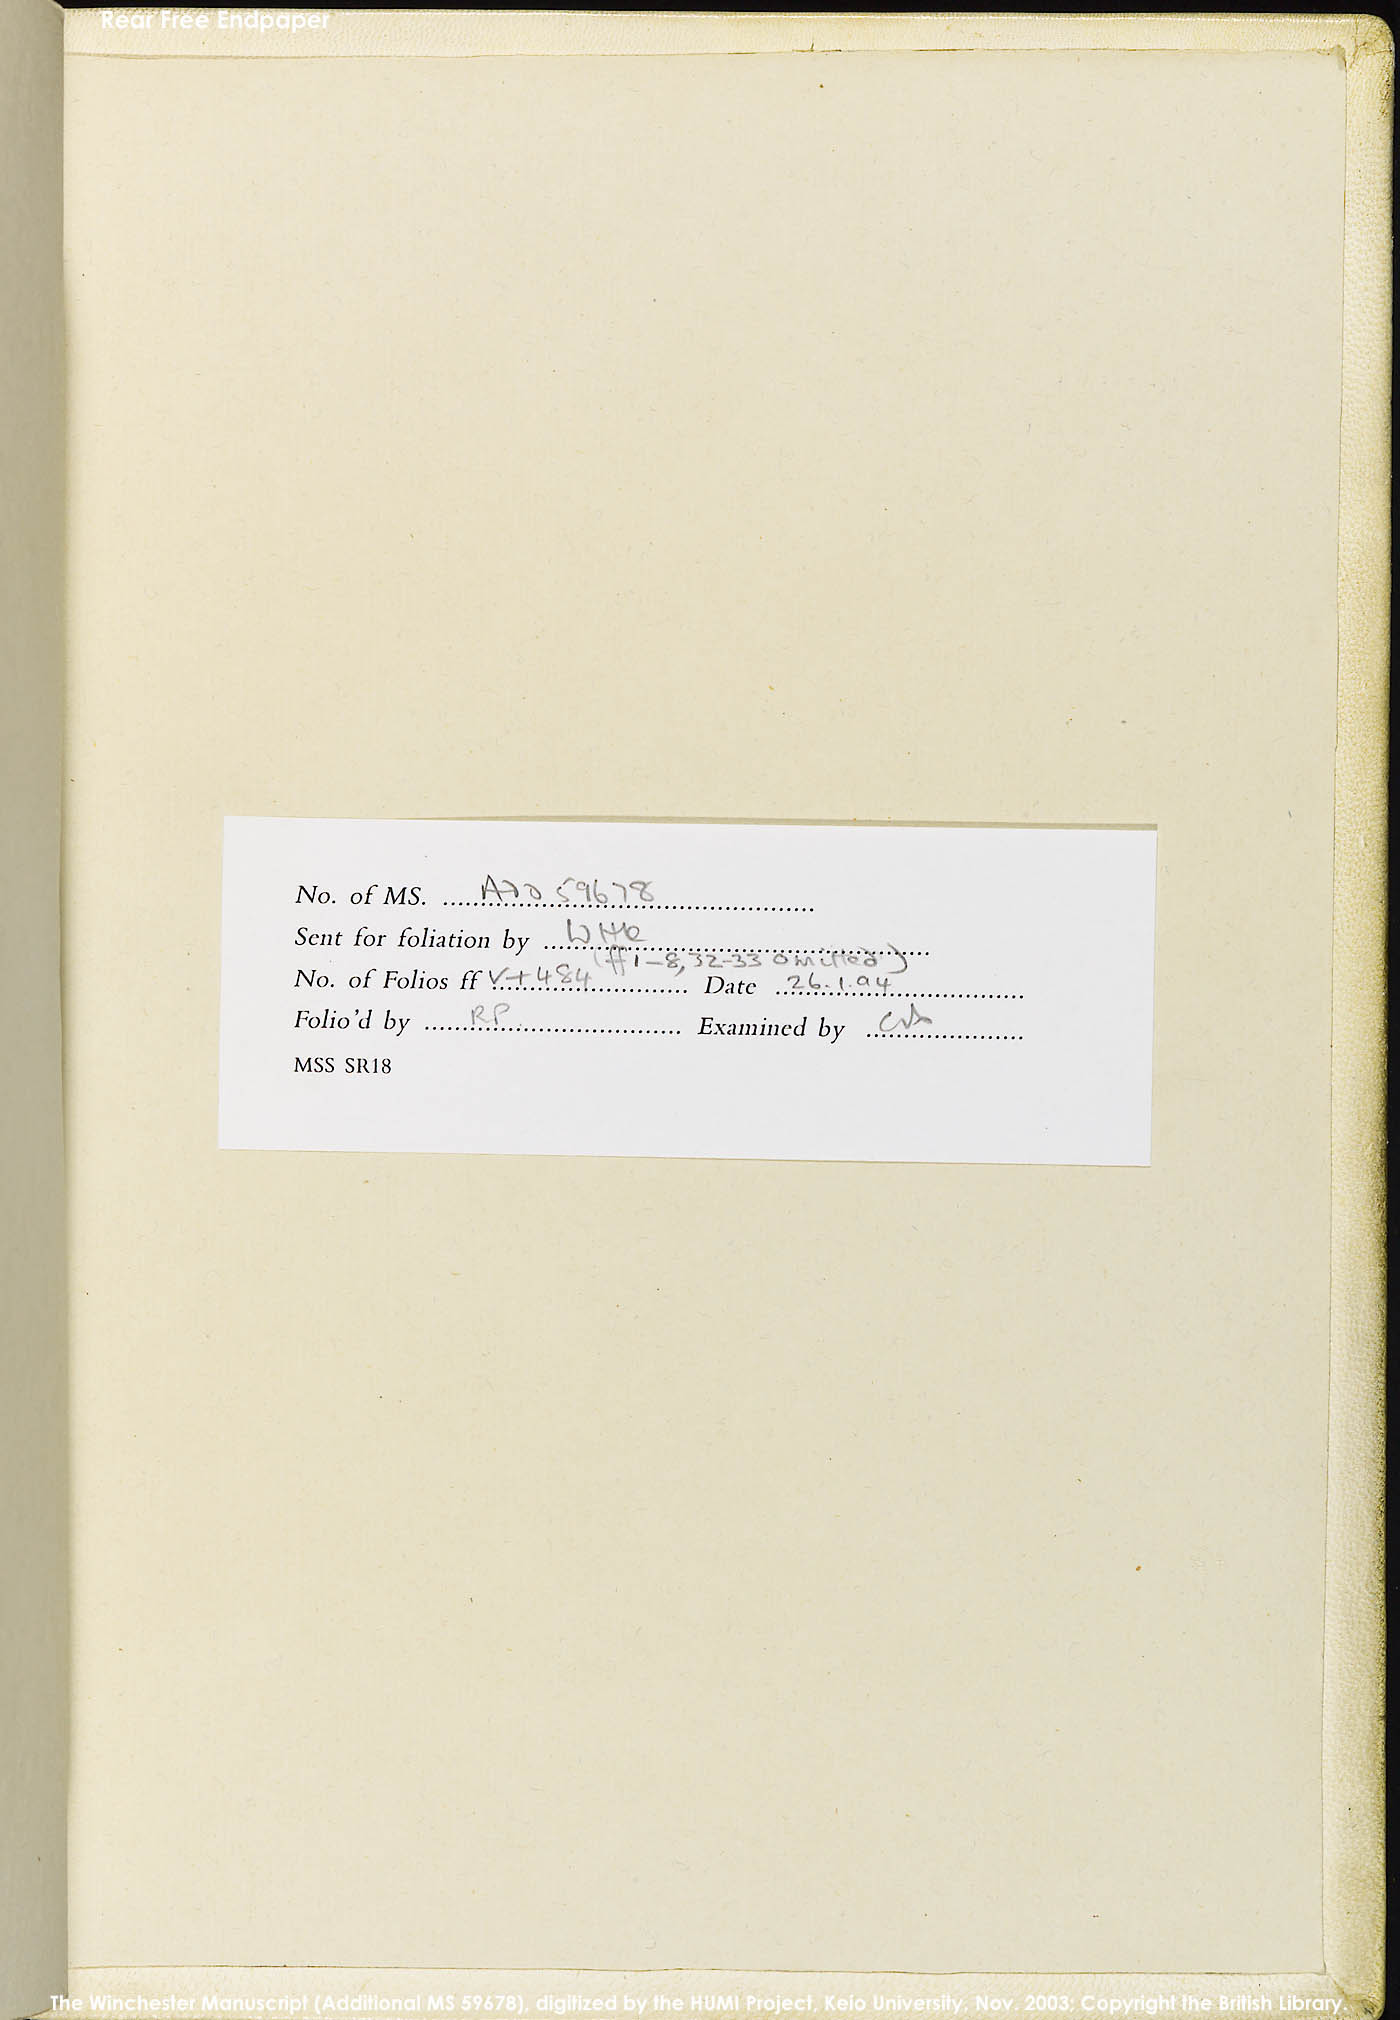 Rear Free Endpaper
No. of MS. ADD 59678
Sent for foliation by WHK
(ff 1-8, 32-33 omitted)
No. of Folios ff V+484 Date 26.1.94
Folio'd by RP Examined by
MSS SR18
The Winchester Manuscript (Additional MS 59678), digitized by the HUMI Project, Keio University, Nov. 2003; Copyright the British Library.